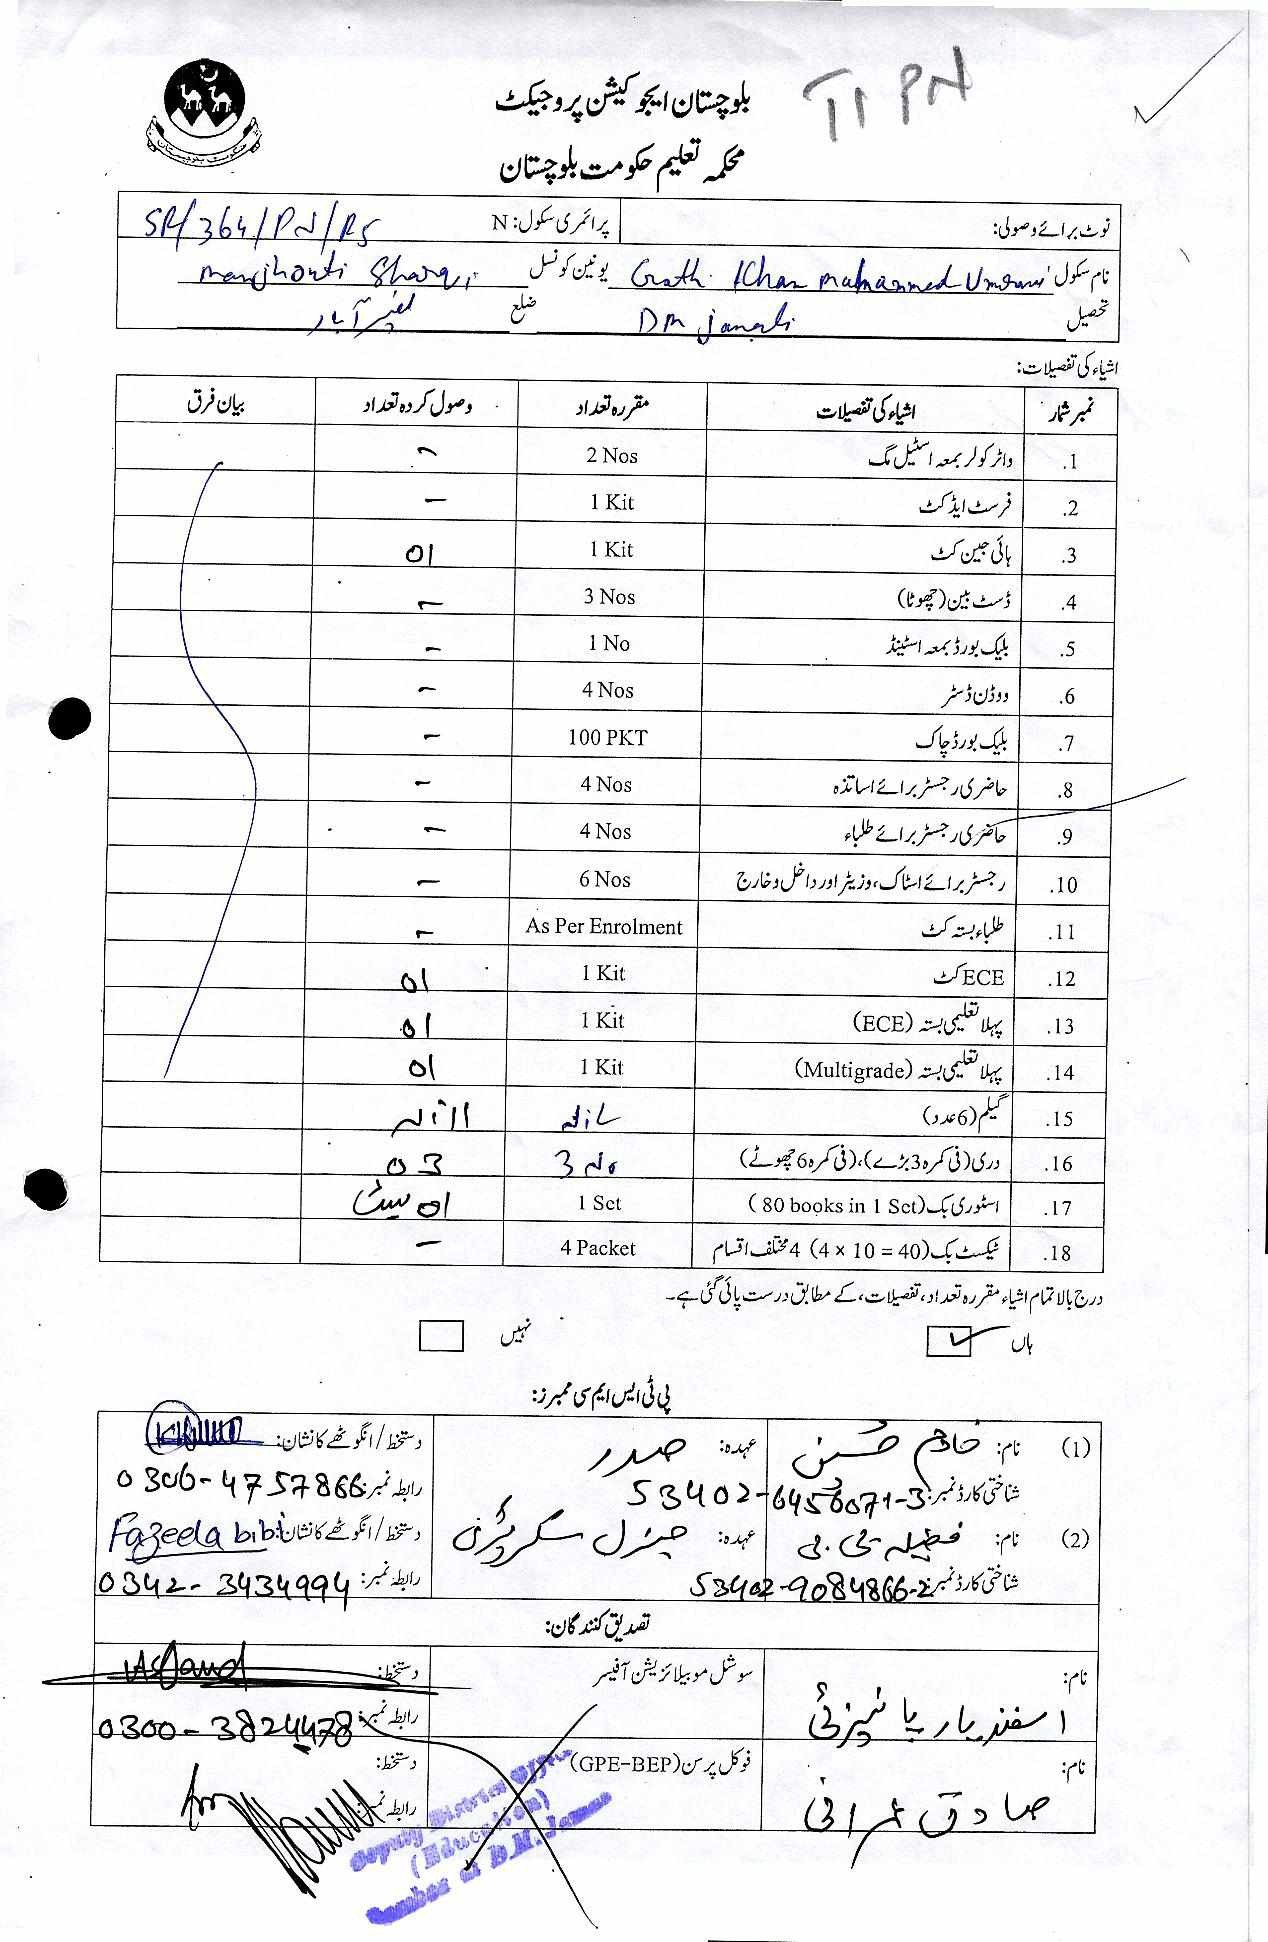 TIPN
بلوچستان ایجوکیشن پروجیکٹ
محکمہ تعلیم حکومت بلوچستان
نوٹ برائے وصولی: پرائمری سکول: N SR/364/PN/RS
نام سکول Goth Khan Muhammad Umrani یونین کونسل Manjhouti Sharqi
تحصیل DM Jamali ضلع نصیر آباد
اشیاء کی تفصیلات:
نمبر شمار اشیاء کی تفصیلات مقررہ تعداد وصول کردہ تعداد بیان فرق
1. واٹر کولر بمعہ اسٹیل مگ 2 Nos -
2. فرسٹ ایڈ کٹ 1 Kit -
3. ہائی جین کٹ 1 Kit 01
4. ڈسٹ بین (چھوٹا) 3 Nos -
5. بلیک بورڈ بمعہ اسٹینڈ 1 No -
6. ووڈن ڈسٹر 4 Nos -
7. بلیک بورڈ چاک 100 PKT -
8. حاضری رجسٹر برائے اساتذہ 4 Nos -
9. حاضری رجسٹر برائے طلباء 4 Nos -
10. رجسٹر برائے اسٹاک، وزیٹر اور داخل و خارج 6 Nos -
11. طلباء بستہ کٹ As Per Enrolment -
12. ECE کٹ 1 Kit 01
13. پہلا تعلیمی بستہ (ECE) 1 Kit 01
14. پہلا تعلیمی بستہ (Multigrade) 1 Kit 01
15. گیلم (6 عدد)
16. دری (فی کمرہ 3 بڑے)، (فی کمرہ 6 چھوٹے) 3 No 03
17. اسٹوری بک (80 books in 1 Set) 1 Set 01 سیٹ
18. ٹیکسٹ بک (4 × 10 = 40) 4 مختلف اقسام 4 Packet -
درج بالا تمام اشیاء مقررہ تعداد، تفصیلات، کے مطابق درست پائی گئی ہے۔
ہاں ✓ نہیں
پی ٹی ایس ایم سی ممبرز:
(1) نام: خادم حسین عہدہ: صدر دستخط/انگوٹھے کا نشان:
شناختی کارڈ نمبر: 53402-6456071-3 رابطہ نمبر: 0306-4757866
(2) نام: فضیلہ بی بی عہدہ: جنرل سکریٹری دستخط/انگوٹھے کا نشان: Fazeela bibi
شناختی کارڈ نمبر: 53402-9084866-2 رابطہ نمبر: 0342-3434994
تصدیق کنندگان:
نام: سوشل موبیلائزیشن آفیسر دستخط:
اسفند یار پانیزئی رابطہ نمبر: 0300-3824478
نام: فوکل پرسن (GPE-BEP) دستخط:
صادق عمرانی رابطہ نمبر:
Deputy District Officer
(Education)